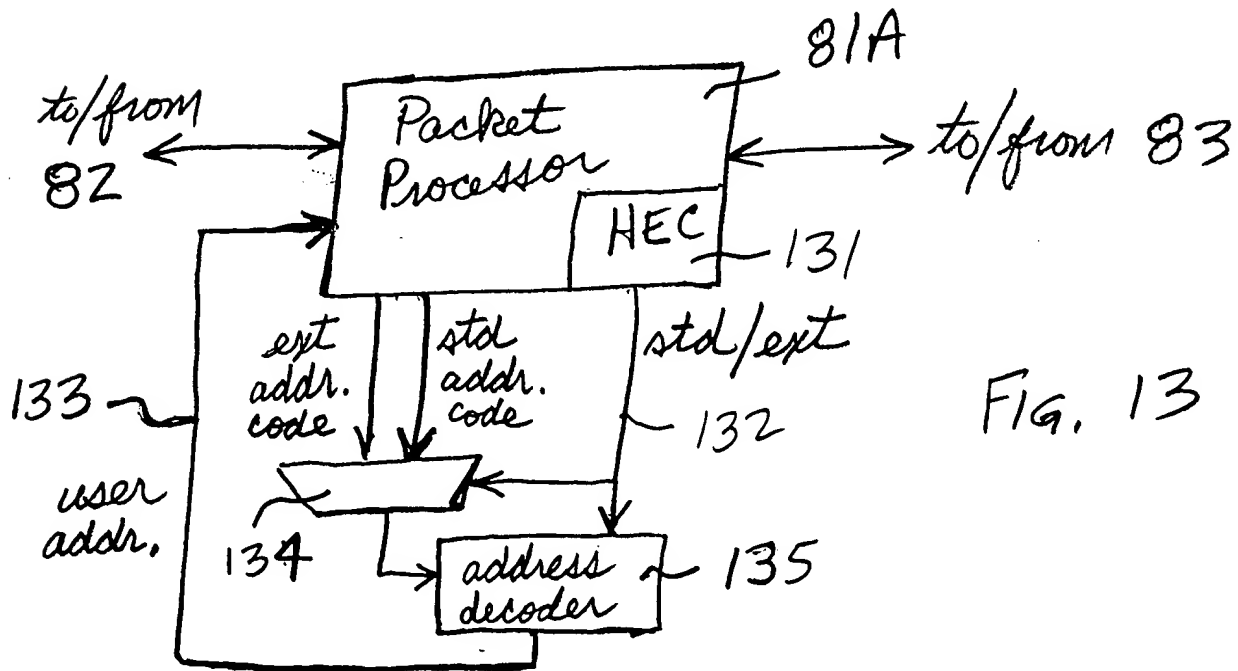 81A
to/from
82
Packet
Processor
to/from 83
HEC
131
ext
addr.
code
std
addr.
code
std/ext
133
132
FIG. 13
user
addr.
134
address
decoder
135